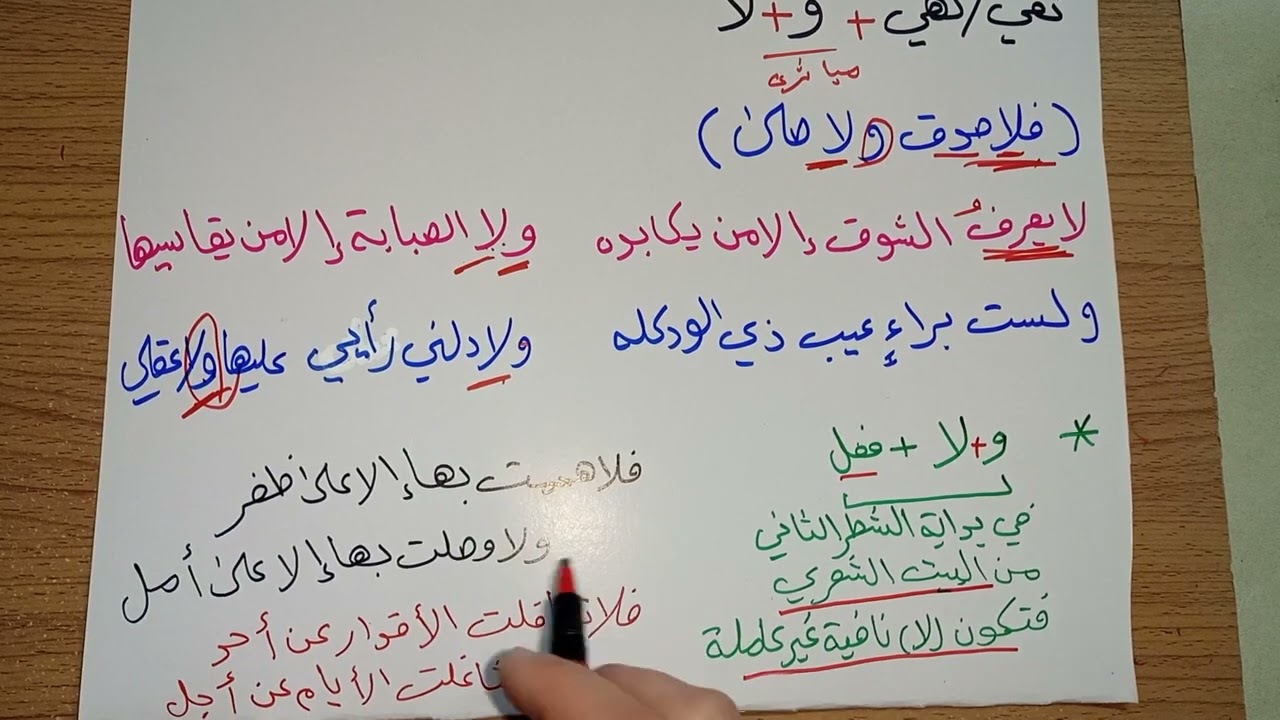 نفي/نهي + و+لا
مباشرة
(فلا صدق ولا صلى)
لا يعرفُ الشوق إلا من يكابده ولا الصبابة إلا من يقاسيها
ولست براءٍ عيب ذي الود كله ولا دلني رأيي عليها ولا عقلي
* و+لا + فعل
في بداية الشطر الثاني
من البيت الشعري
فتكون (لا) نافية غير عاملة
فلا هممت بها إلا على ظفر
ولا وصلت بها إلا على أمل
الأقدار عن أحد
الأيام عن أجل